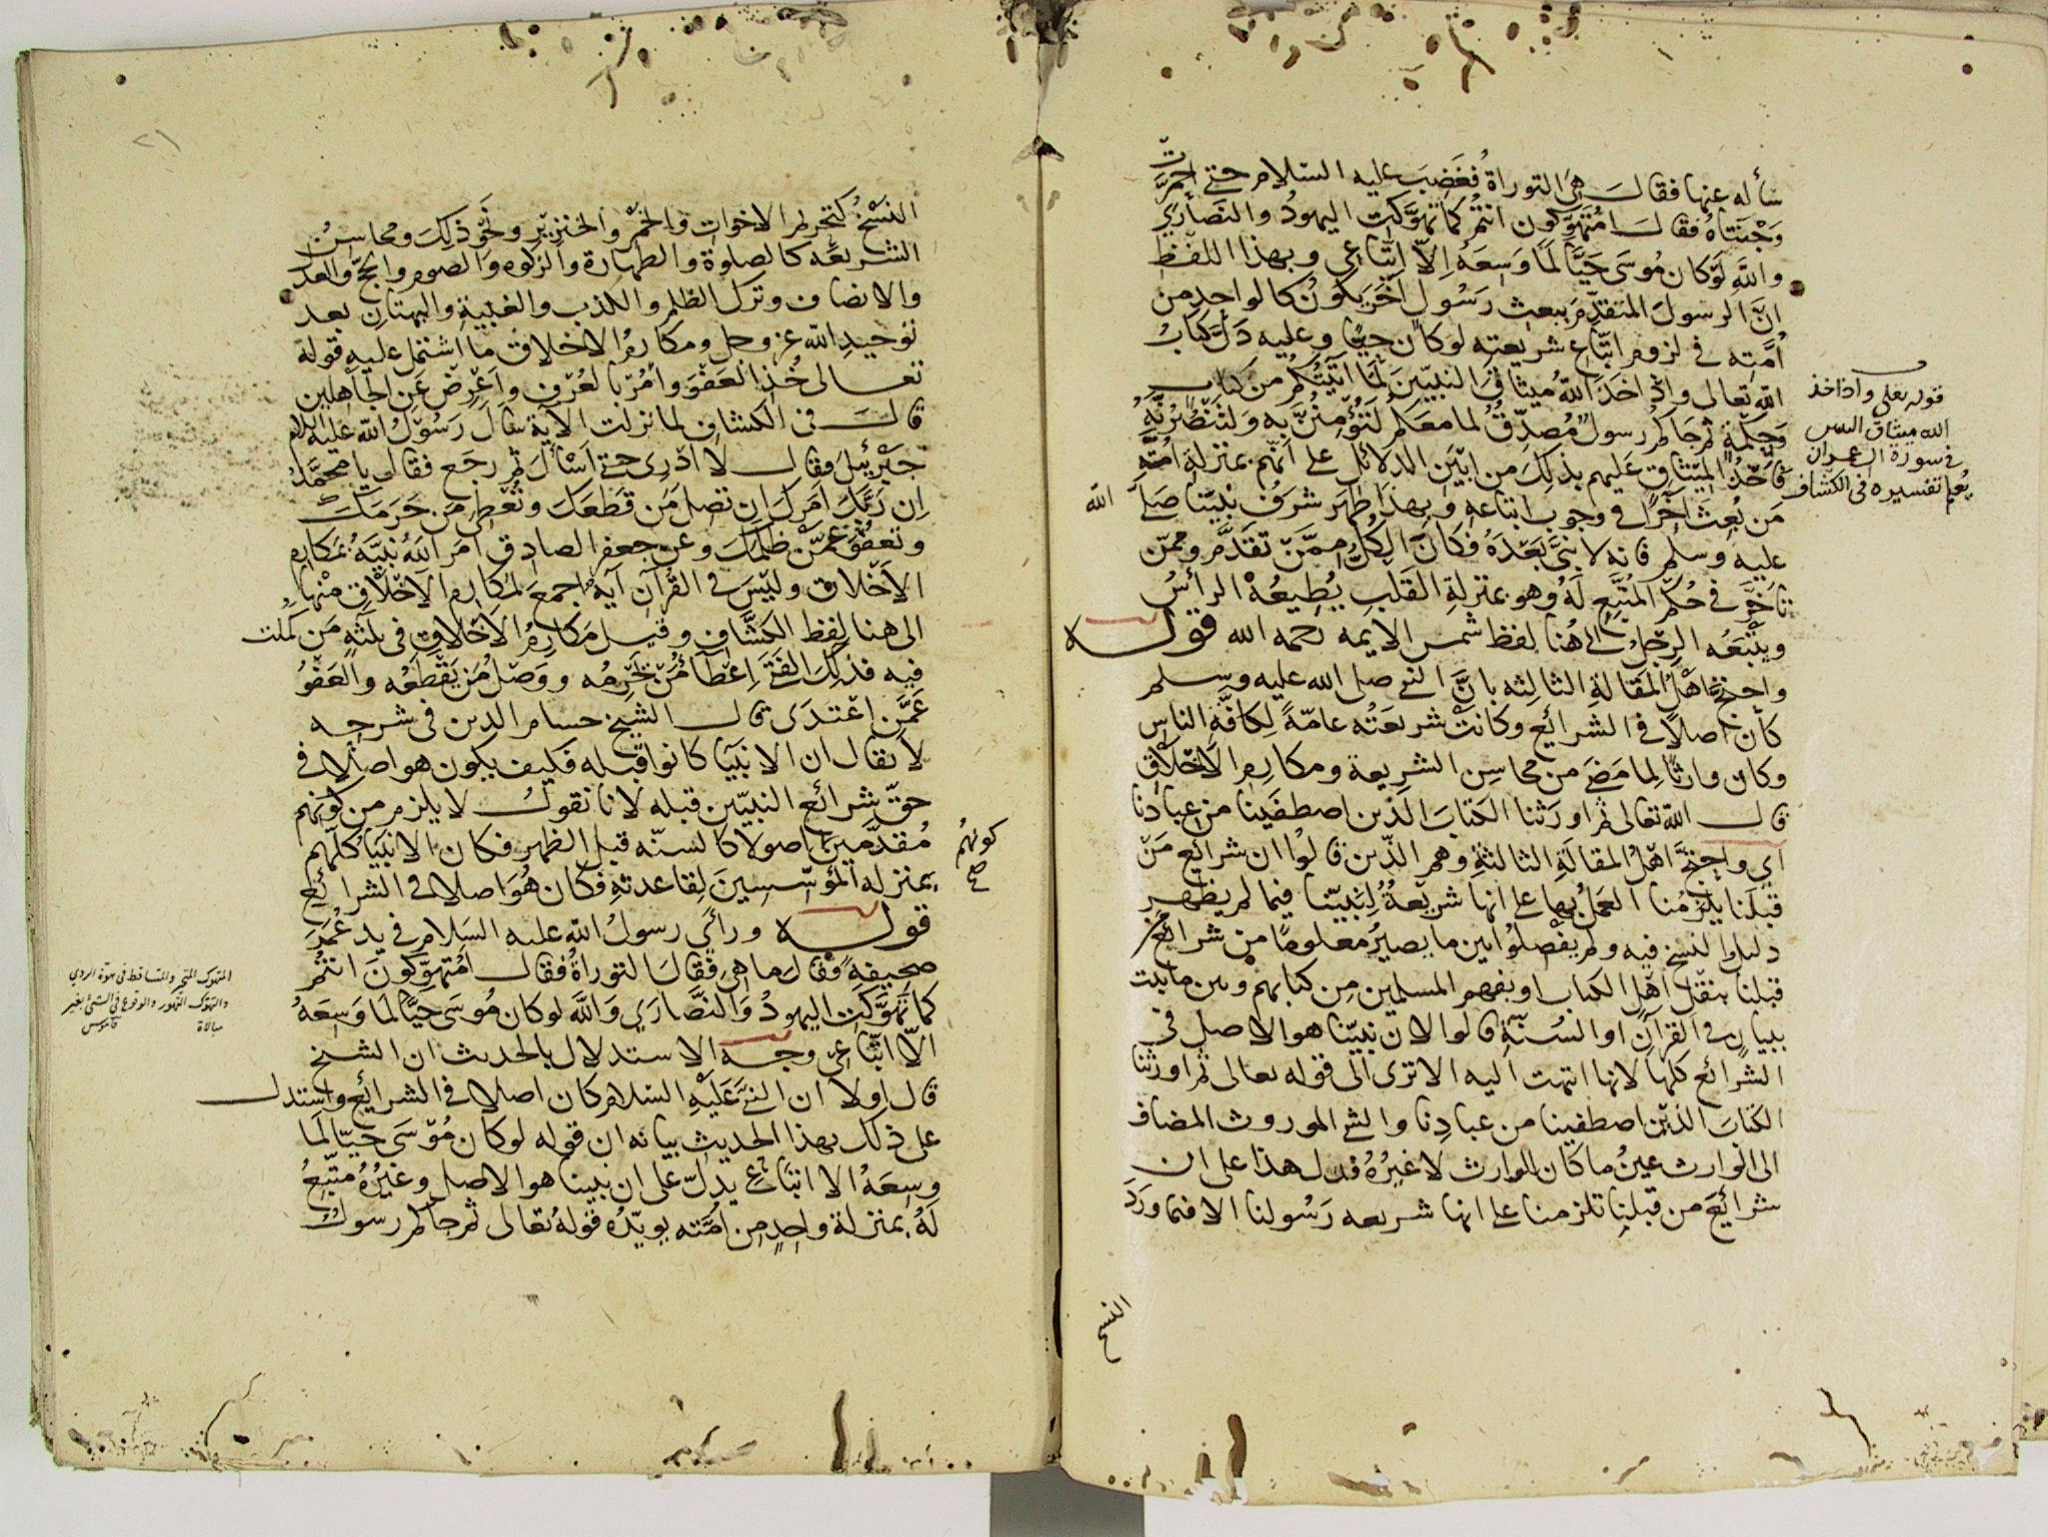 سأله عنها فقال هي التوراة فغضب عليه السلام حتى احمرت
وجنتاه فقال امتهوكون انتم كما تهوكت اليهود والنصارى
والله لو كان موسى حيا لما وسعه الا اتباعي وبهذا اللفظ
ان الرسول المتقدم ببعث رسول آخر يكون كالواحد من
امته في لزوم اتباع شريعته لو كان حيا وعليه دل كتاب
الله تعالى واذ اخذ الله ميثاق النبيين لما آتيتكم من كتاب
وحكمة ثم جاكم رسول مصدق لما معكم لتؤمنن به ولتنصرنه
فاخذ الميثاق عليهم بذلك من ابين الدلائل على انهم بمنزلة امة
من بعث آخرا في وجوب اتباعه وبهذا ظهر شرف نبينا صلى الله
عليه وسلم فانه لا نبي بعده فكان الكل ممن تقدم وممن
تاخر في حكم المتبع له وهو بمنزلة القلب يطيعه الرأس
ويتبعه الرجل الى هنا لفظ شمس الايمه رحمه الله قوله
واحتج اهل المقالة الثالثه بان النبي صلى الله عليه وسلم
كان اصلا في الشرائع وكانت شريعته عامة لكافة الناس
وكان وارثا لما مضى من محاسن الشريعة ومكارم الاخلاق
قال الله تعالى ثم اورثنا الكتاب الذين اصطفينا من عبادنا
اي واحتج اهل المقالة الثالثة وهم الذين قالوا ان شرائع من
قبلنا يلزمنا العمل بها على انها شريعة لنبينا فيما لم يظهر
دليل النسخ فيه ولم يفصلوا بين ما يصير معلوما من شرائع من
قبلنا بنقل اهل الكتاب او بفهم المسلمين من كتابهم وبين ما يثبت
ببيان في القرآن او السنة قالوا لان نبينا هو الاصل في
الشرائع كلها لانها انتهت اليه الا ترى الى قوله تعالى ثم اورثنا
الكتاب الذين اصطفينا من عبادنا والشي الموروث المضاف
الى الوارث عين ما كان للوارث لا غيره فدل هذا على ان
شرائع من قبلنا تلزمنا على انها شريعه رسولنا الا فيما ورد
النسخ
قوله تعالى واذ اخذ
الله ميثاق النبيين
في سورة آل عمران
يعلم تفسيره في الكشاف
٢١
النسخ كتحريم الاخوات والخمر والخنزير ونحو ذلك ومحاسن
الشريعه كالصلوة والطهارة والزكوه والصوم والحج والعدل
والانصاف وترك الظلم والكذب والغيبة والبهتان بعد
توحيد الله عز وجل ومكارم الاخلاق ما اشتمل عليه قوله
تعالى خذ العفو وأمر بالعرف واعرض عن الجاهلين
قال في الكشاف لما نزلت الآية سأل رسول الله عليه السلام
جبرئيل فقال لا ادري حتى اسأل ثم رجع فقال يا محمد
ان ربك امرك ان تصل من قطعك وتعطي من حرمك
وتعفو عمن ظلمك وعن جعفر الصادق امر الله نبيه بمكارم
الاخلاق وليس في القرآن آية اجمع لمكارم الاخلاق منها
الى هنا لفظ الكشاف وقيل مكارم الاخلاق في ثلثه من كملت
فيه فذلك الفتى اعطاء من تحرمه ووصل من يقطعه والعفو
عمن اعتدى قال الشيخ حسام الدين في شرحه
لا يقال ان الانبيا كانوا قبله فكيف يكون هو اصلا في
حق شرائع النبيين قبله لانا نقول لا يلزم من كونهم
مقدمين اصولا كالسنه قبل الظهر فكان الانبيا كلهم
بمنزله المؤسسين لقاعدته فكان هو اصلا في الشرائع
قوله ورأى رسول الله عليه السلام في يد عمر
صحيفة فقال ما هي فقال التوراة فقال امتهوكون انتم
كما تهوكت اليهود والنصارى والله لو كان موسى حيا لما وسعه
الا اتباعي وجه الاستدلال بالحديث ان الشيخ
قال اولا ان النبي عليه السلام كان اصلا في الشرائع واستدل
على ذلك بهذا الحديث بيانه ان قوله لو كان موسى حيا لما
وسعه الا اتباعي يدل على ان نبينا هو الاصل وغيره متبع
له بمنزلة واحد من امته يويده قوله تعالى ثم جاكم رسول
كونهم
صح
المتهوك المتحير والساقط في هوة الردى
والتهوك التهور والوقوع في الشئ بغير
مبالاة قاموس